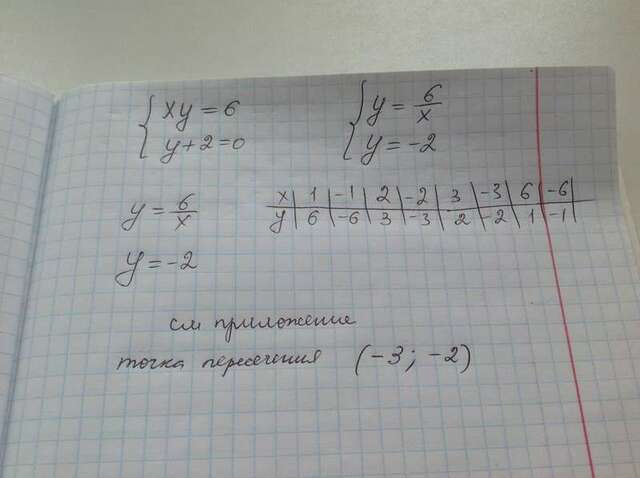 { xy = 6
{ y + 2 = 0
{ y = 6/x
{ y = -2
y = 6/x
y = -2
x | 1 | -1 | 2 | -2 | 3 | -3 | 6 | -6 |
y | 6 | -6 | 3 | -3 | 2 | -2 | 1 | -1 |
см приложение
точка пересечения (-3; -2)